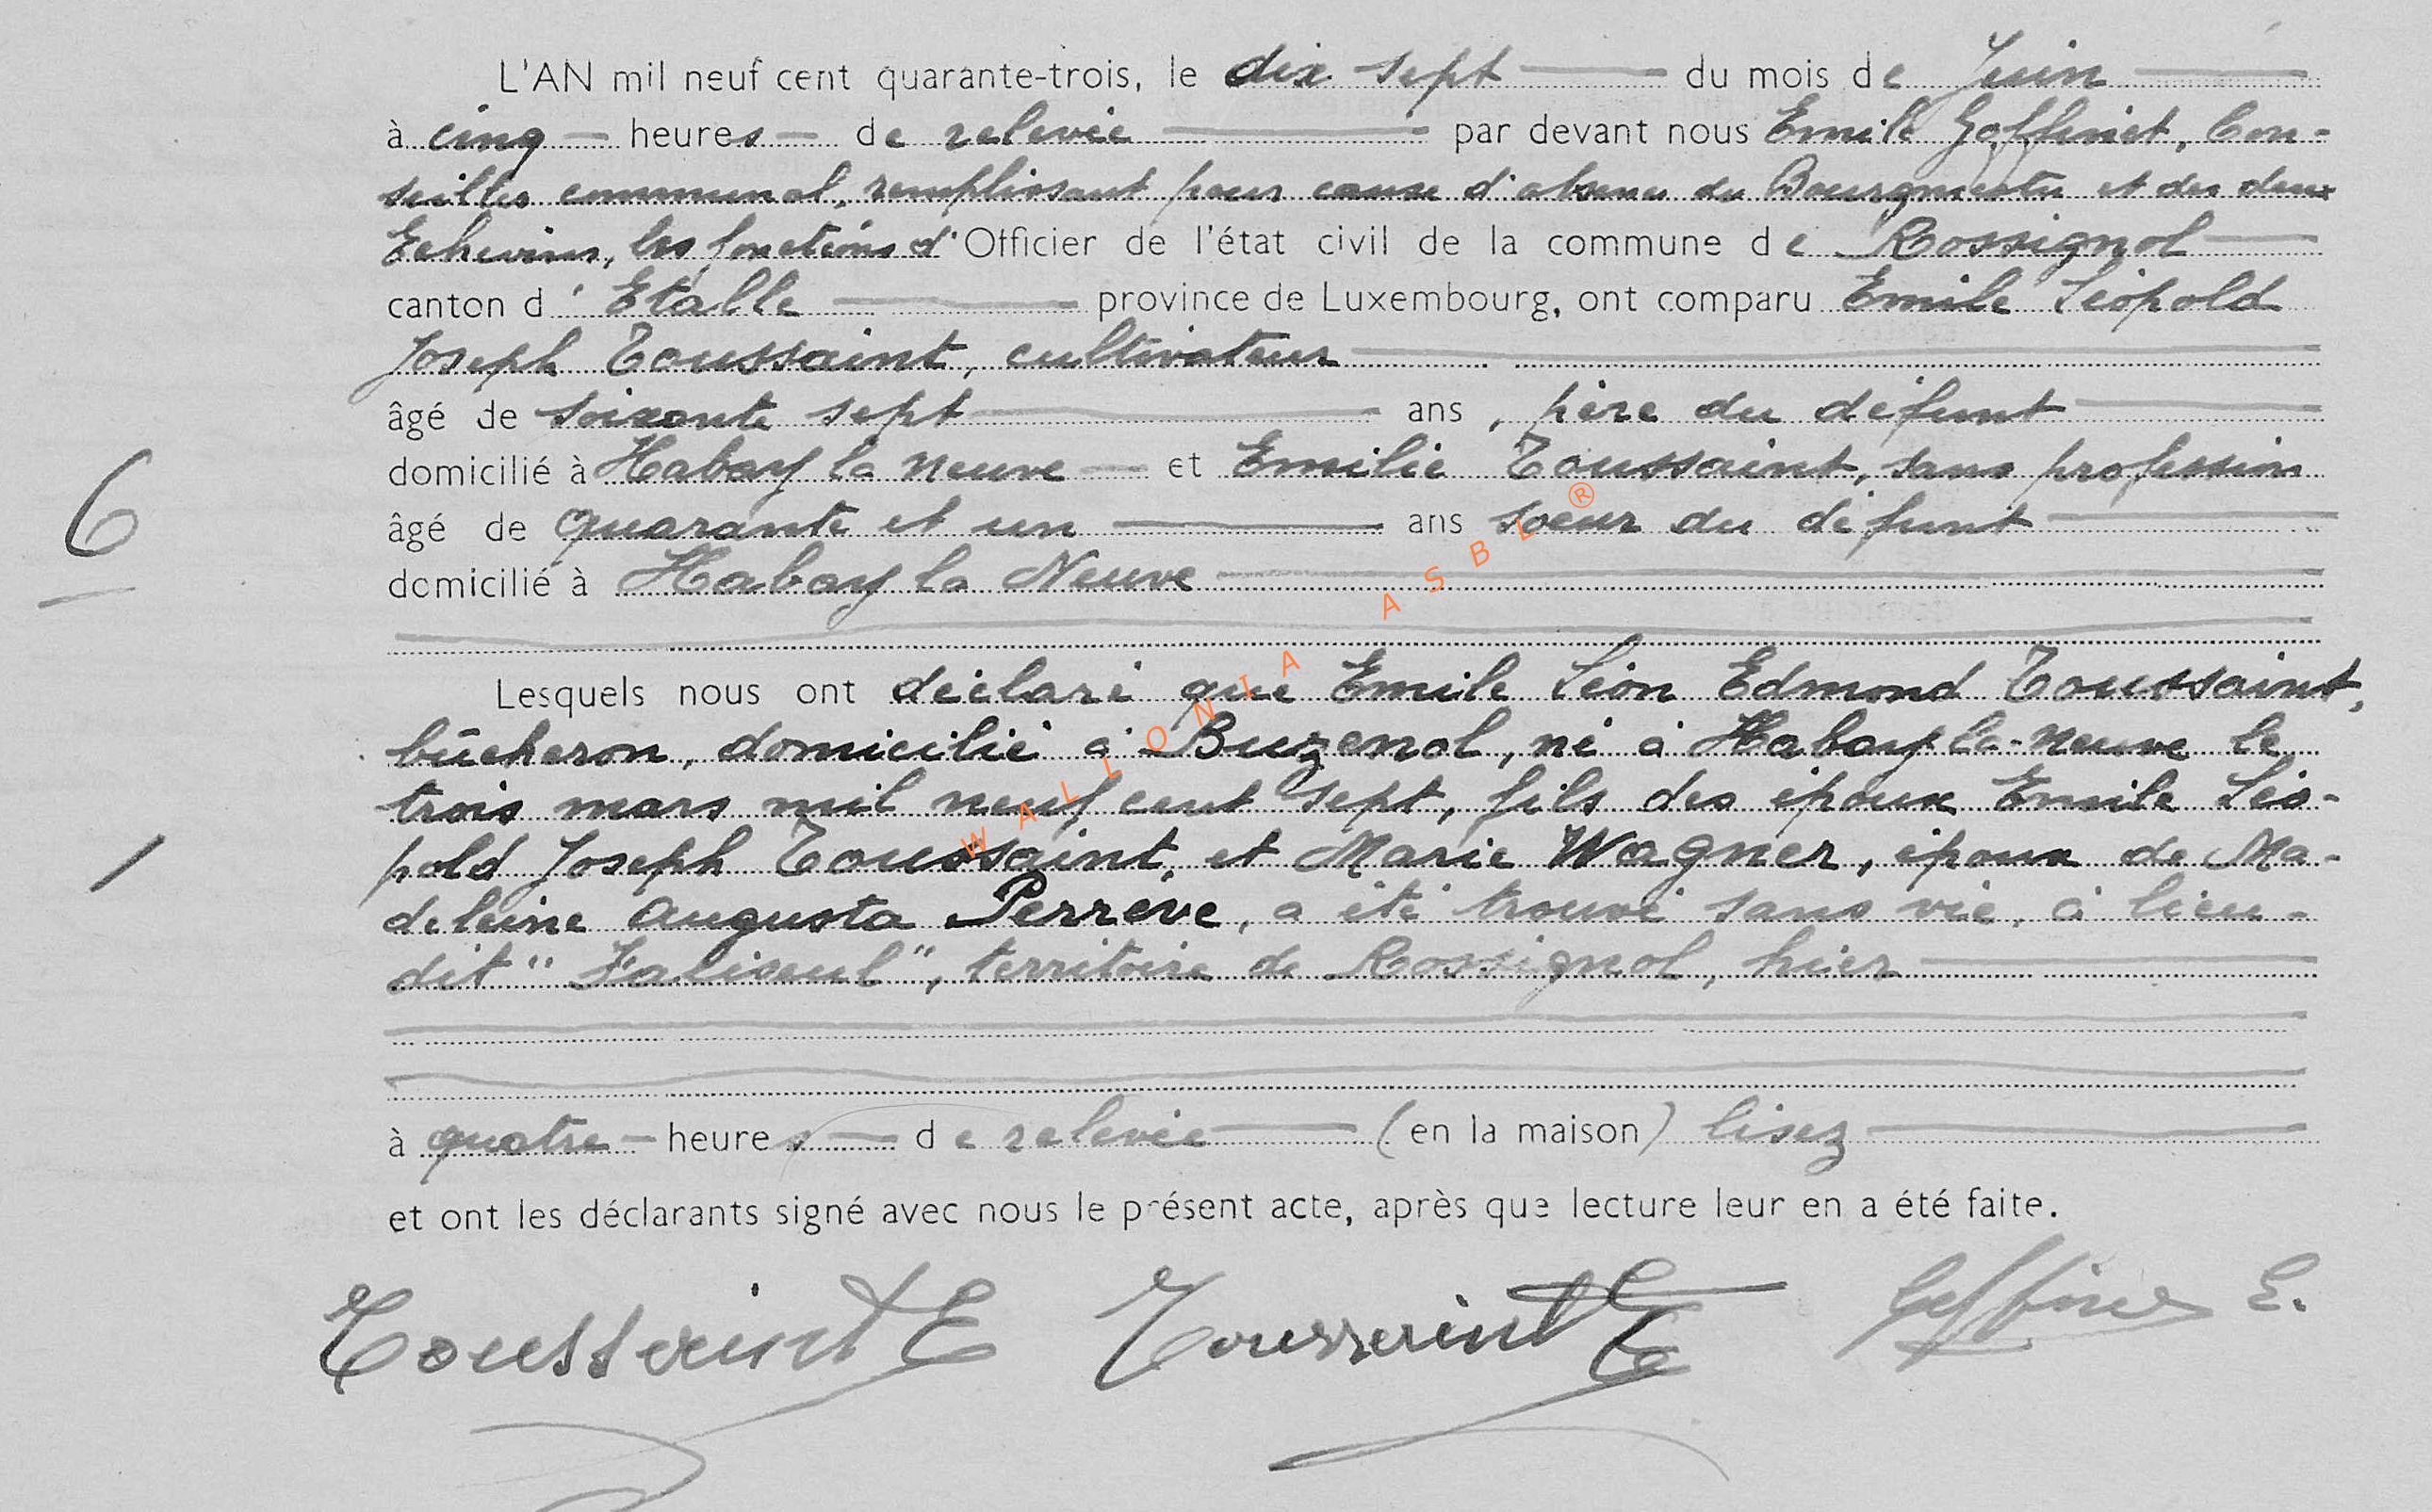 L'AN mil neuf cent quarante-trois, le dix sept du mois de Juin
à cinq heures de relevée par devant nous Emile Goffinet, Con-
seiller communal, remplissant pour cause d'absence du Bourgmestre et des deux
Echevins, les fonctions d'Officier de l'état civil de la commune de Rossignol
canton d'Etalle province de Luxembourg, ont comparu Emile Léopold
Joseph Toussaint, cultivateur
âgé de soixante sept ans, père du défunt
domicilié à Habay la Neuve et Emilie Toussaint, sans profession
6
âgé de quarante et un ans soeur du défunt
domicilié à Habay la Neuve
Lesquels nous ont déclaré que Emile Léon Edmond Toussaint,
bûcheron, domicilié à Buzenol, né à Habay-la-Neuve le
trois mars mil neuf cent sept, fils des époux Emile Léo-
pold Joseph Toussaint, et Marie Wagner, époux de Ma-
deleine Augusta Perreve, a été trouvé sans vie, à lieu-
dit "Faliseul", territoire de Rossignol, hier
à quatre heures de relevée (en la maison) lisez
et ont les déclarants signé avec nous le présent acte, après que lecture leur en a été faite.
Toussaint E Toussaint E Goffinet E.
WALLONIA ASBL ®